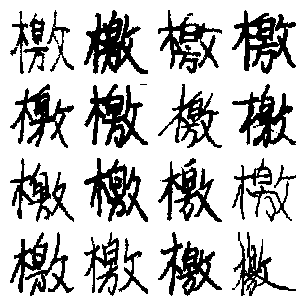 檄檄檄檄
檄檄檄檄
檄檄檄檄
檄檄檄檄